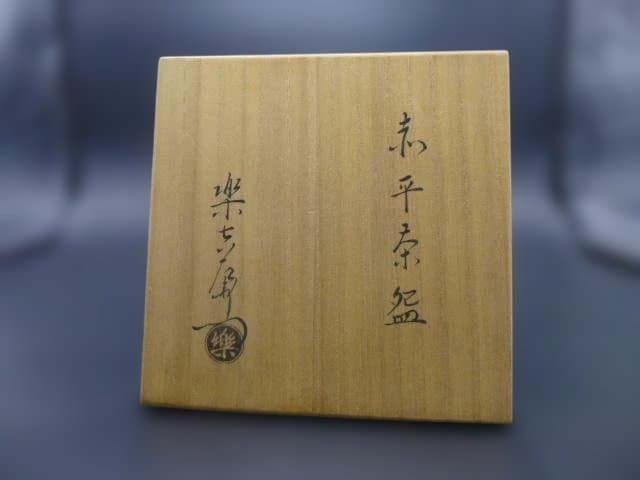 赤平茶盌
楽吉左衛門
樂